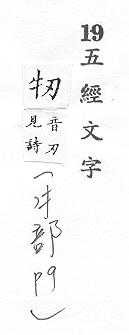 19五經文字
牣
音刃
見詩
(牛部P9)